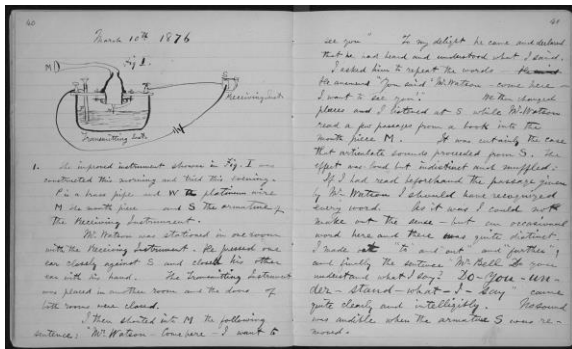 40
March 10th 1876
Fig 1.
M
Receiving Inst.
Transmitting Inst.
1. The improved instrument shown in Fig. I was
constructed this morning and tried this evening.
P is a brass pipe and W the platinum wire
M the mouth piece and S the armature of
the Receiving Instrument.
Mr. Watson was stationed in one room
with the Receiving Instrument. He pressed one
ear closely against S and closed his other
ear with his hand. The Transmitting Instrument
was placed in another room and the doors of
both rooms were closed.
I then shouted into M the following
sentence: "Mr. Watson - Come here - I want to
41
see you" To my delight he came and declared
that he had heard and understood what I said.
I asked him to repeat the words
He answered "You said 'Mr. Watson - come here -
I want to see you'." We then changed
places and I listened at S while Mr. Watson
read a few passages from a book into the
mouth piece M. It was certainly the case
that articulate sounds proceeded from S. The
effect was loud but indistinct and muffled.
If I had read beforehand the passage given
by Mr. Watson I should have recognized
every word. As it was I could not
make out the sense - but an occasional
word here and there was quite distinct.
I made out "to" and "out" and "further";
and finally the sentence "Mr. Bell Do you
understand what I say? Do - you - un-
der - stand - what - I - say" came
quite clearly and intelligibly. No sound
was audible when the armature S was re-
moved.